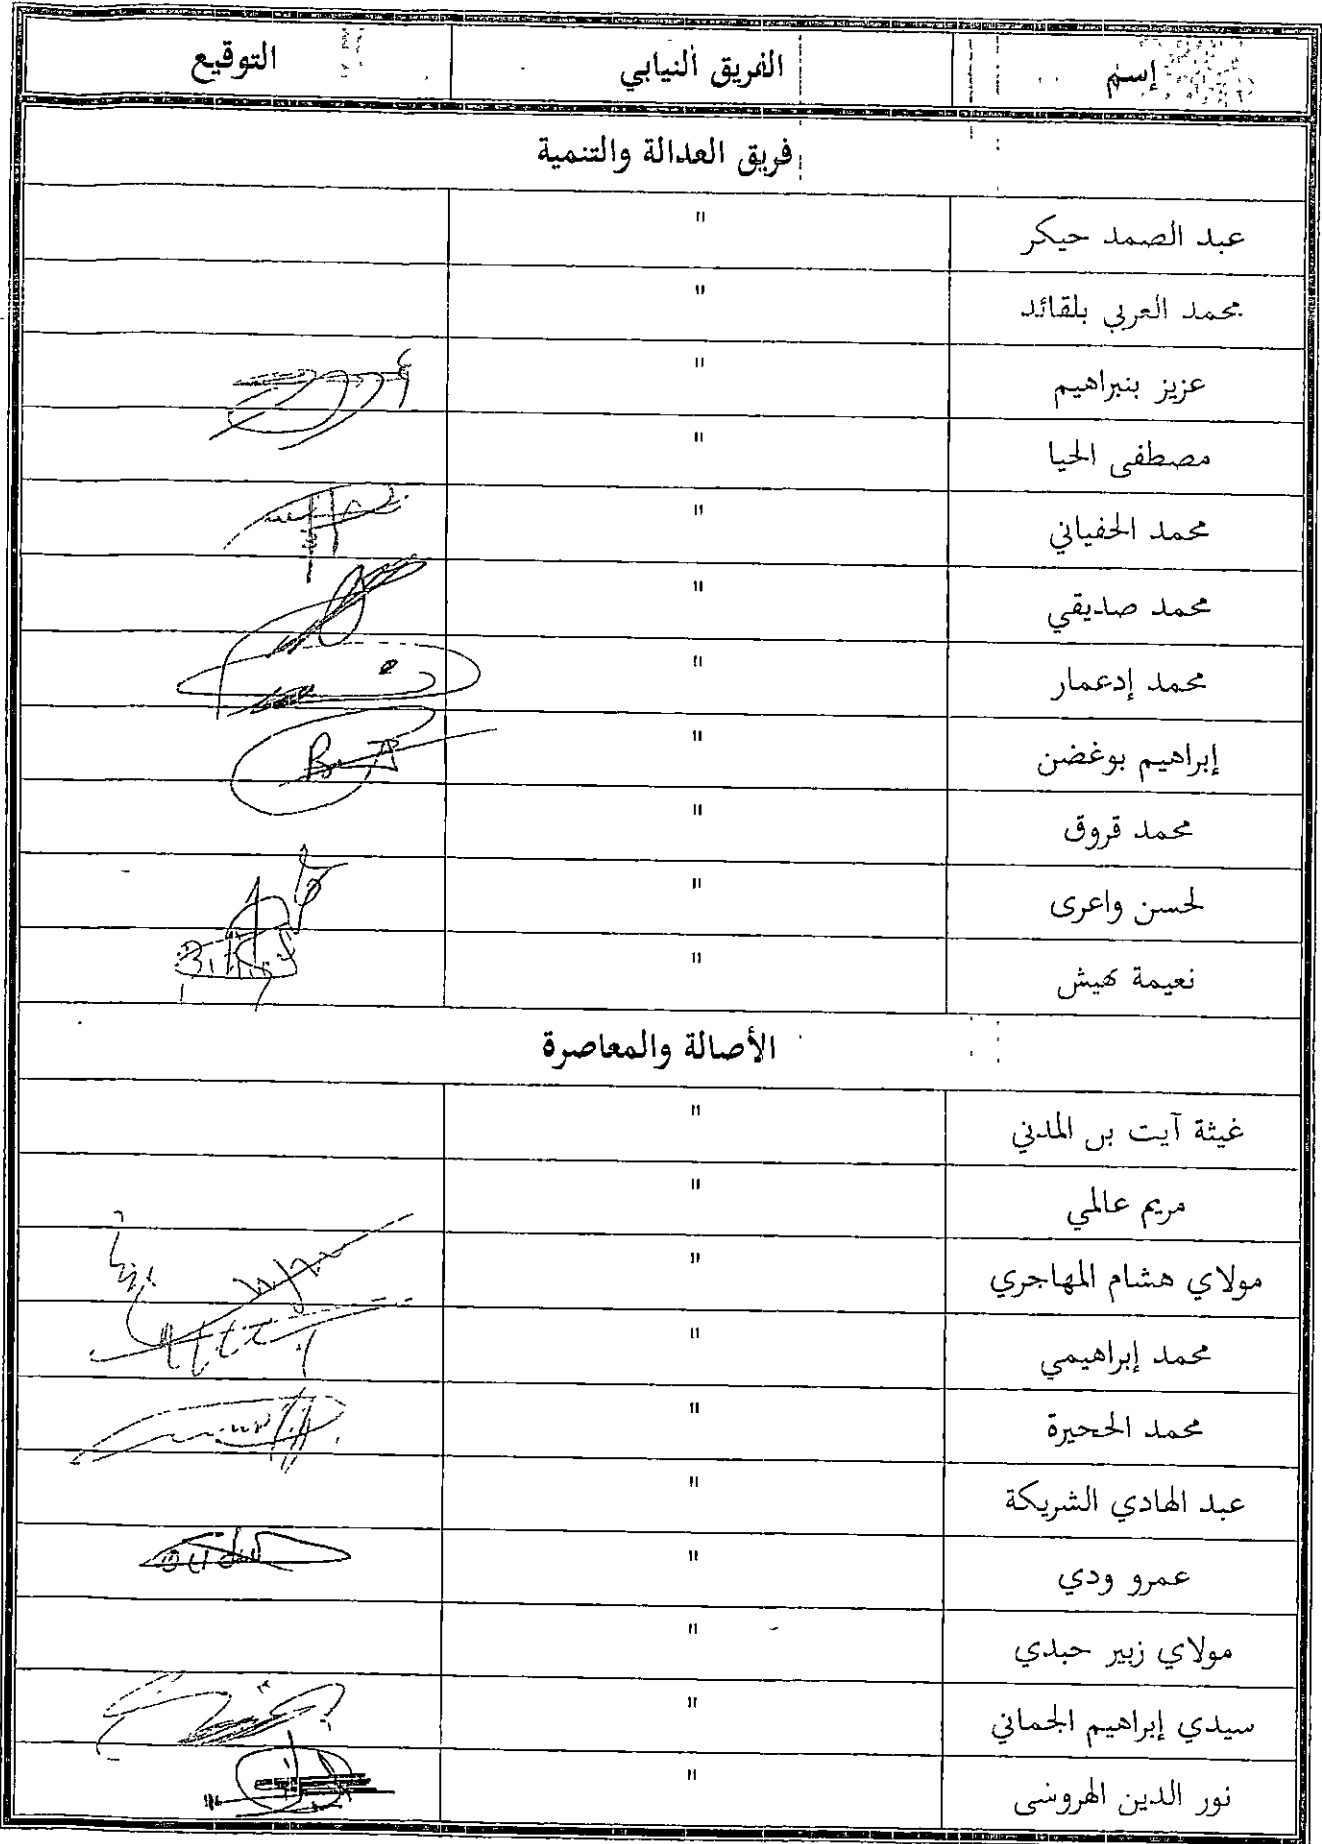 إسم الفريق النيابي التوقيع
فريق العدالة والتنمية
عبد الصمد حيكر "
محمد العربي بلقائد "
عزيز بنبراهيم "
مصطفى الحيا "
محمد الحفياني "
محمد صديقي "
محمد إدعمار "
إبراهيم بوغضن "
محمد قروق "
لحسن واعرى "
نعيمة هيش "
الأصالة والمعاصرة
غيثة آيت بن المدني "
مريم عالمي "
مولاي هشام المهاجري "
محمد إبراهيمي "
محمد الحجيرة "
عبد الهادي الشريكة "
عمرو ودي "
مولاي زبير حبدي "
سيدي إبراهيم الجماني "
نور الدين الهروشي "